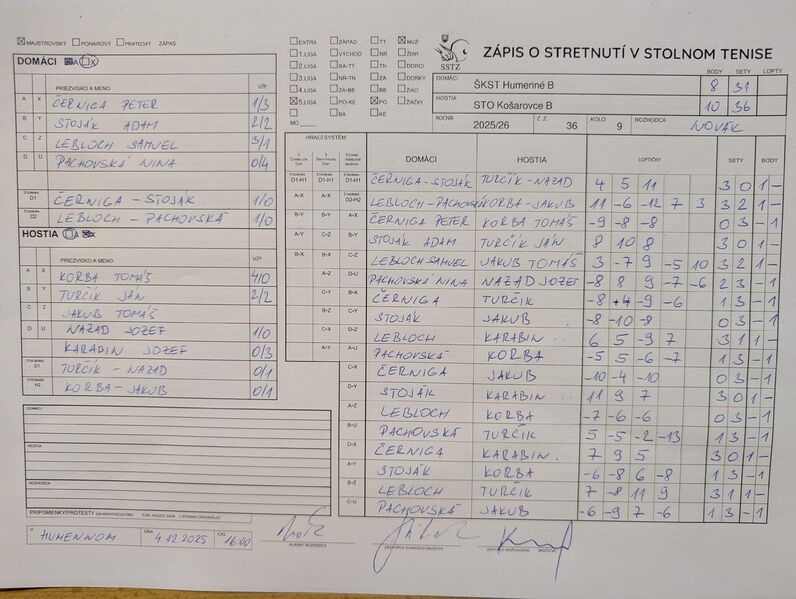 ☒ MAJSTROVSKÝ ☐ POHÁROVÝ ☐ PRIATEĽSKÝ ZÁPAS
DOMÁCI
PRIEZVISKO A MENO V/P
A X ČERNIGA PETER 1/3
B Y STOJÁK ADAM 2/2
C Z LEBLOCH SAMUEL 3/1
D U PACHOVSKÁ NINA 0/4
D1 ČERNIGA - STOJAK 1/0
D2 LEBLOCH - PACHOVSKÁ 1/0
HOSTIA
PRIEZVISKO A MENO V/P
A X KORBA TOMÁŠ 4/0
B Y TURČÍK JÁN 2/2
C Z JAKUB TOMÁŠ
D U NAZAD JOZEF 1/0
KARABIN JOZEF 0/3
D1 TURČÍK - NAZAD 0/1
H2 KORBA - JAKUB 0/1
DOMÁCI
HOSTIA
ROZHODCA
PRIPOMIENKY/PROTESTY
V HUMENNOM DŇA 4.12.2025 ČAS 16:00
HLAVNÝ ROZHODCA
☐ EXTRA ☐ ZÁPAD ☐ TT ☒ MUŽI
☐ 1.LIGA ☐ VÝCHOD ☐ NR ☐ ŽENY
☐ 2.LIGA ☐ BA-TT ☐ TN ☐ DORCI
☐ 3.LIGA ☐ NR-TN ☐ ZA ☐ DORKY
☐ 4.LIGA ☐ ZA-BB ☐ BB ☐ ŽIACI
☒ 5.LIGA ☐ PO-KE ☒ PO ☐ ŽIAČKY
☐ ☐ BA ☐ KE
MO
SSTZ
ZÁPIS O STRETNUTÍ V STOLNOM TENISE
BODY SETY LOPTY
DOMÁCI ŠKST Humenné B 8 31
HOSTIA STO Košarovce B 10 36
ROČNÍK 2025/26 Č.Z. 36 KOLO 9 ROZHODCA NOVÁK
HRACÍ SYSTÉM DOMÁCI HOSTIA LOPTIČKY SETY BODY
D1-H1 D1-H1 D1-H1 ČERNIGA-STOJÁK TURČÍK-NAZAD 4 5 11 3 0 1 -
A-X A-X D2-H2 LEBLOCH-PACHOVSKÁ KORBA-JAKUB 11 -6 -12 7 3 3 2 1 -
B-Y B-Y A-X ČERNIGA PETER KORBA TOMÁŠ -9 -8 -8 0 3 - 1
A-Y C-Z B-Y STOJÁK ADAM TURČÍK JÁN 8 10 8 3 0 1 -
B-X B-X C-Z LEBLOCH SAMUEL JAKUB TOMÁŠ 3 -7 9 -5 10 3 2 1 -
A-Z D-U PACHOVSKÁ NINA NAZAD JOZEF -8 8 9 -7 -6 2 3 - 1
C-Y B-X ČERNIGA TURČÍK -8 +4 -9 -6 1 3 - 1
B-Z C-Y STOJÁK JAKUB -8 -10 -8 0 3 - 1
C-X D-Z LEBLOCH KARABIN... 6 5 -9 7 3 1 1 -
A-Y A-U PACHOVSKÁ KORBA -5 5 -6 -7 1 3 - 1
C-X ČERNIGA JAKUB -10 -4 -10 0 3 - 1
D-Y STOJÁK KARABIN... 11 9 7 3 0 1 -
A-Z LEBLOCH KORBA -7 -6 -6 0 3 - 1
B-U PACHOVSKÁ TURČÍK 5 -5 -2 -13 1 3 - 1
D-X ČERNIGA KARABIN.. 7 9 5 3 0 1 -
A-Y STOJÁK KORBA -6 -8 6 -8 1 3 - 1
B-Z LEBLOCH TURČÍK 7 -8 11 9 3 1 1 -
C-U PACHOVSKÁ JAKUB -6 -9 7 -6 1 3 - 1